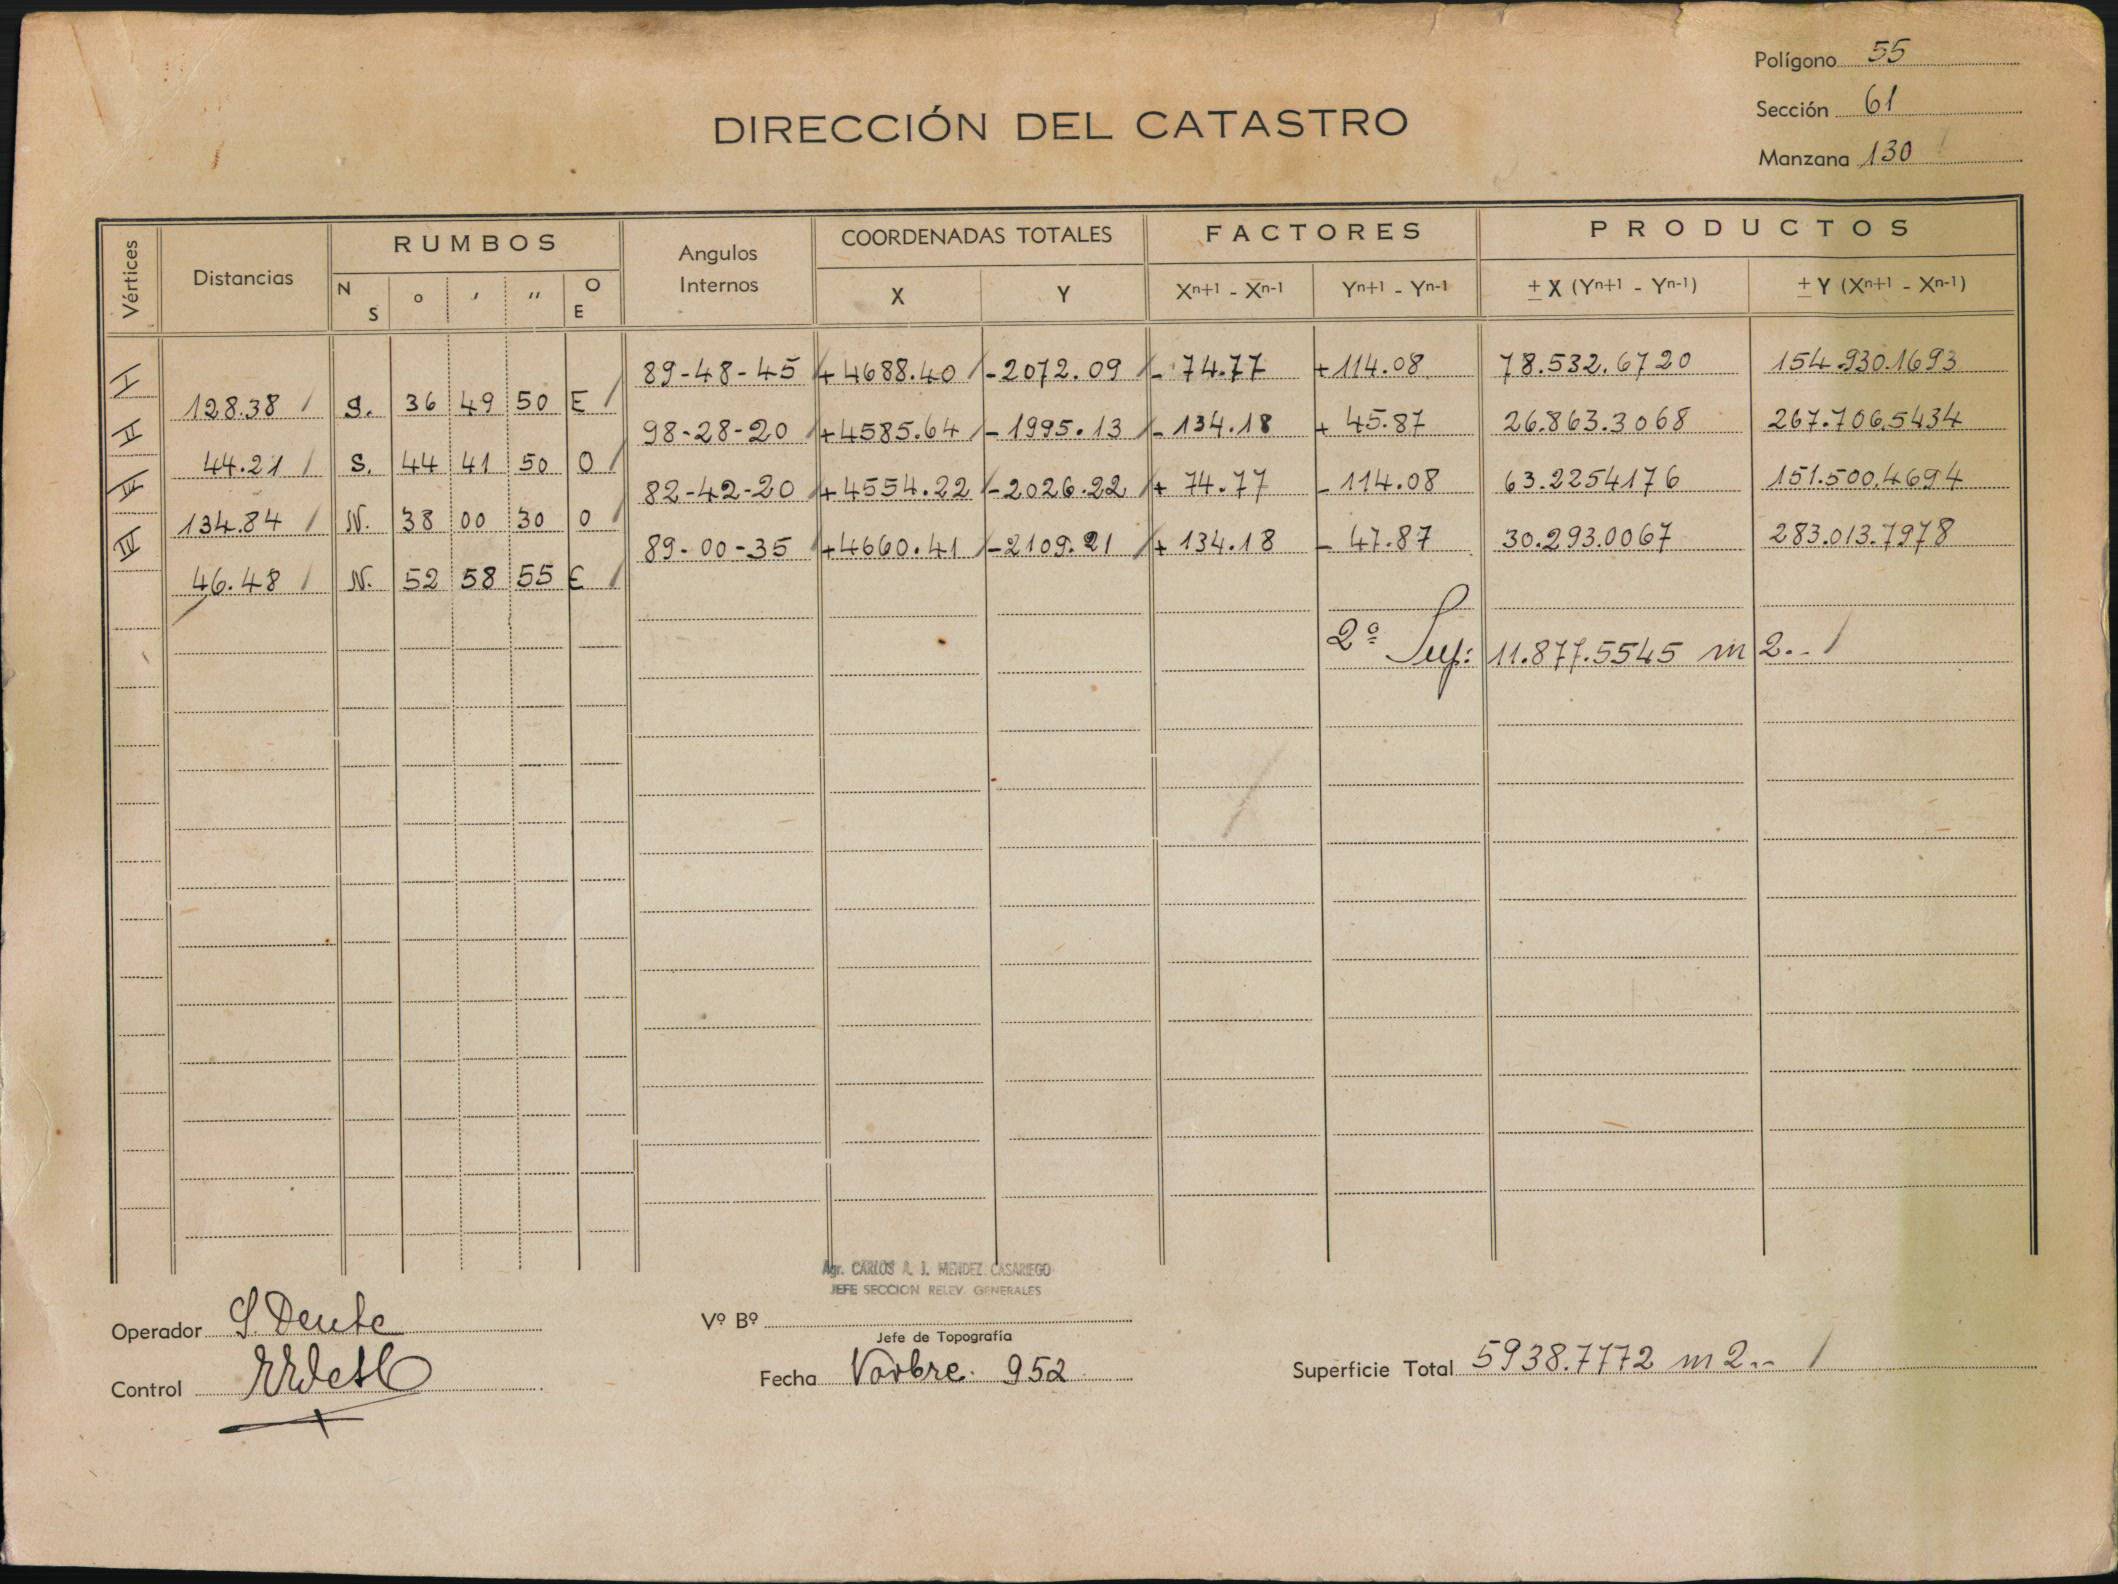 Polígono 55
Sección 61
Manzana 130
DIRECCIÓN DEL CATASTRO
Vértices Distancias RUMBOS Angulos Internos COORDENADAS TOTALES FACTORES PRODUCTOS
N S ° ' " O E X Y Xn+1 - Xn-1 Yn+1 - Yn-1 ± X (Yn+1 - Yn-1) ± Y (Xn+1 - Xn-1)
I 89-48-45 +4688.40 -2072.09 - 74.77 +114.08 78.532.6720 154.930.1693
128.38 S. 36 49 50 E
II 98-28-20 +4585.64 -1995.13 -134.18 + 45.87 26.863.3068 267.706.5434
44.21 S. 44 41 50 O
III 82-42-20 +4554.22 -2026.22 + 74.77 -114.08 63.2254176 151.500.4694
134.84 N. 38 00 30 O
IV 89-00-35 +4660.41 -2109.21 + 134.18 - 47.87 30.293.0067 283.013.7978
46.48 N. 52 58 55 E
2º Sup: 11.877.5545 m2..
Agr. CARLOS A. J. MENDEZ CASARIEGO
JEFE SECCION RELEV. GENERALES
Operador S. Dente
Vº Bº
Jefe de Topografía
Control
Fecha Novbre. 952
Superficie Total 5938.7772 m2..